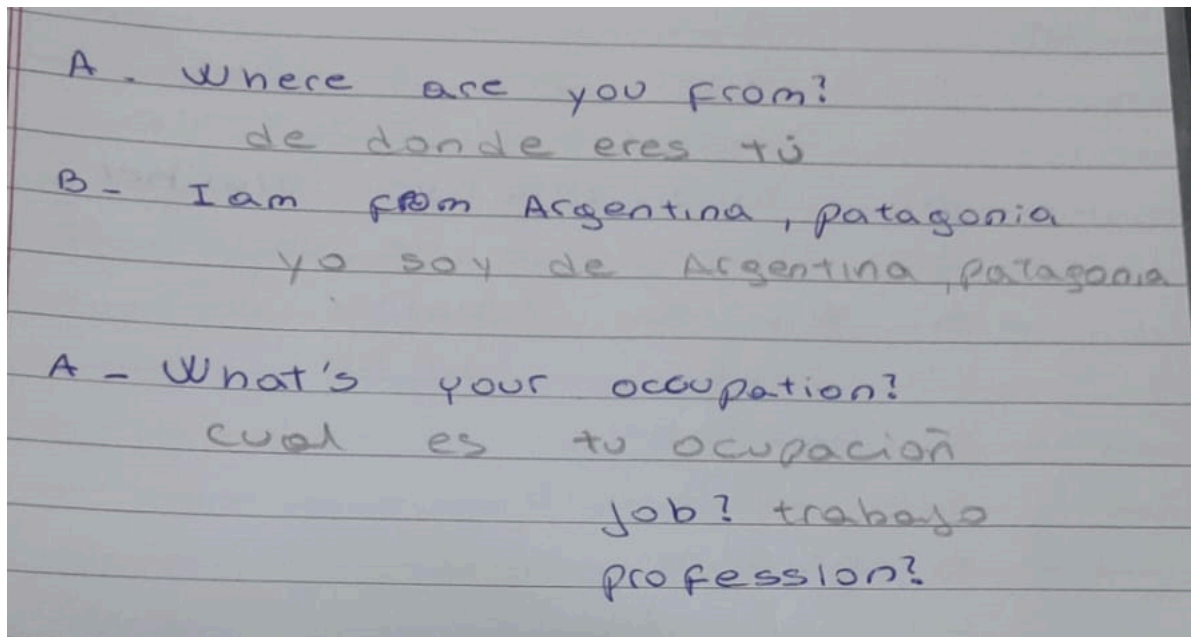 A - Where are you from?
de donde eres tú
B - I am from Argentina, patagonia
yo soy de Argentina, patagonia
A - What's your occupation?
cual es tu ocupación
job? trabajo
profession?